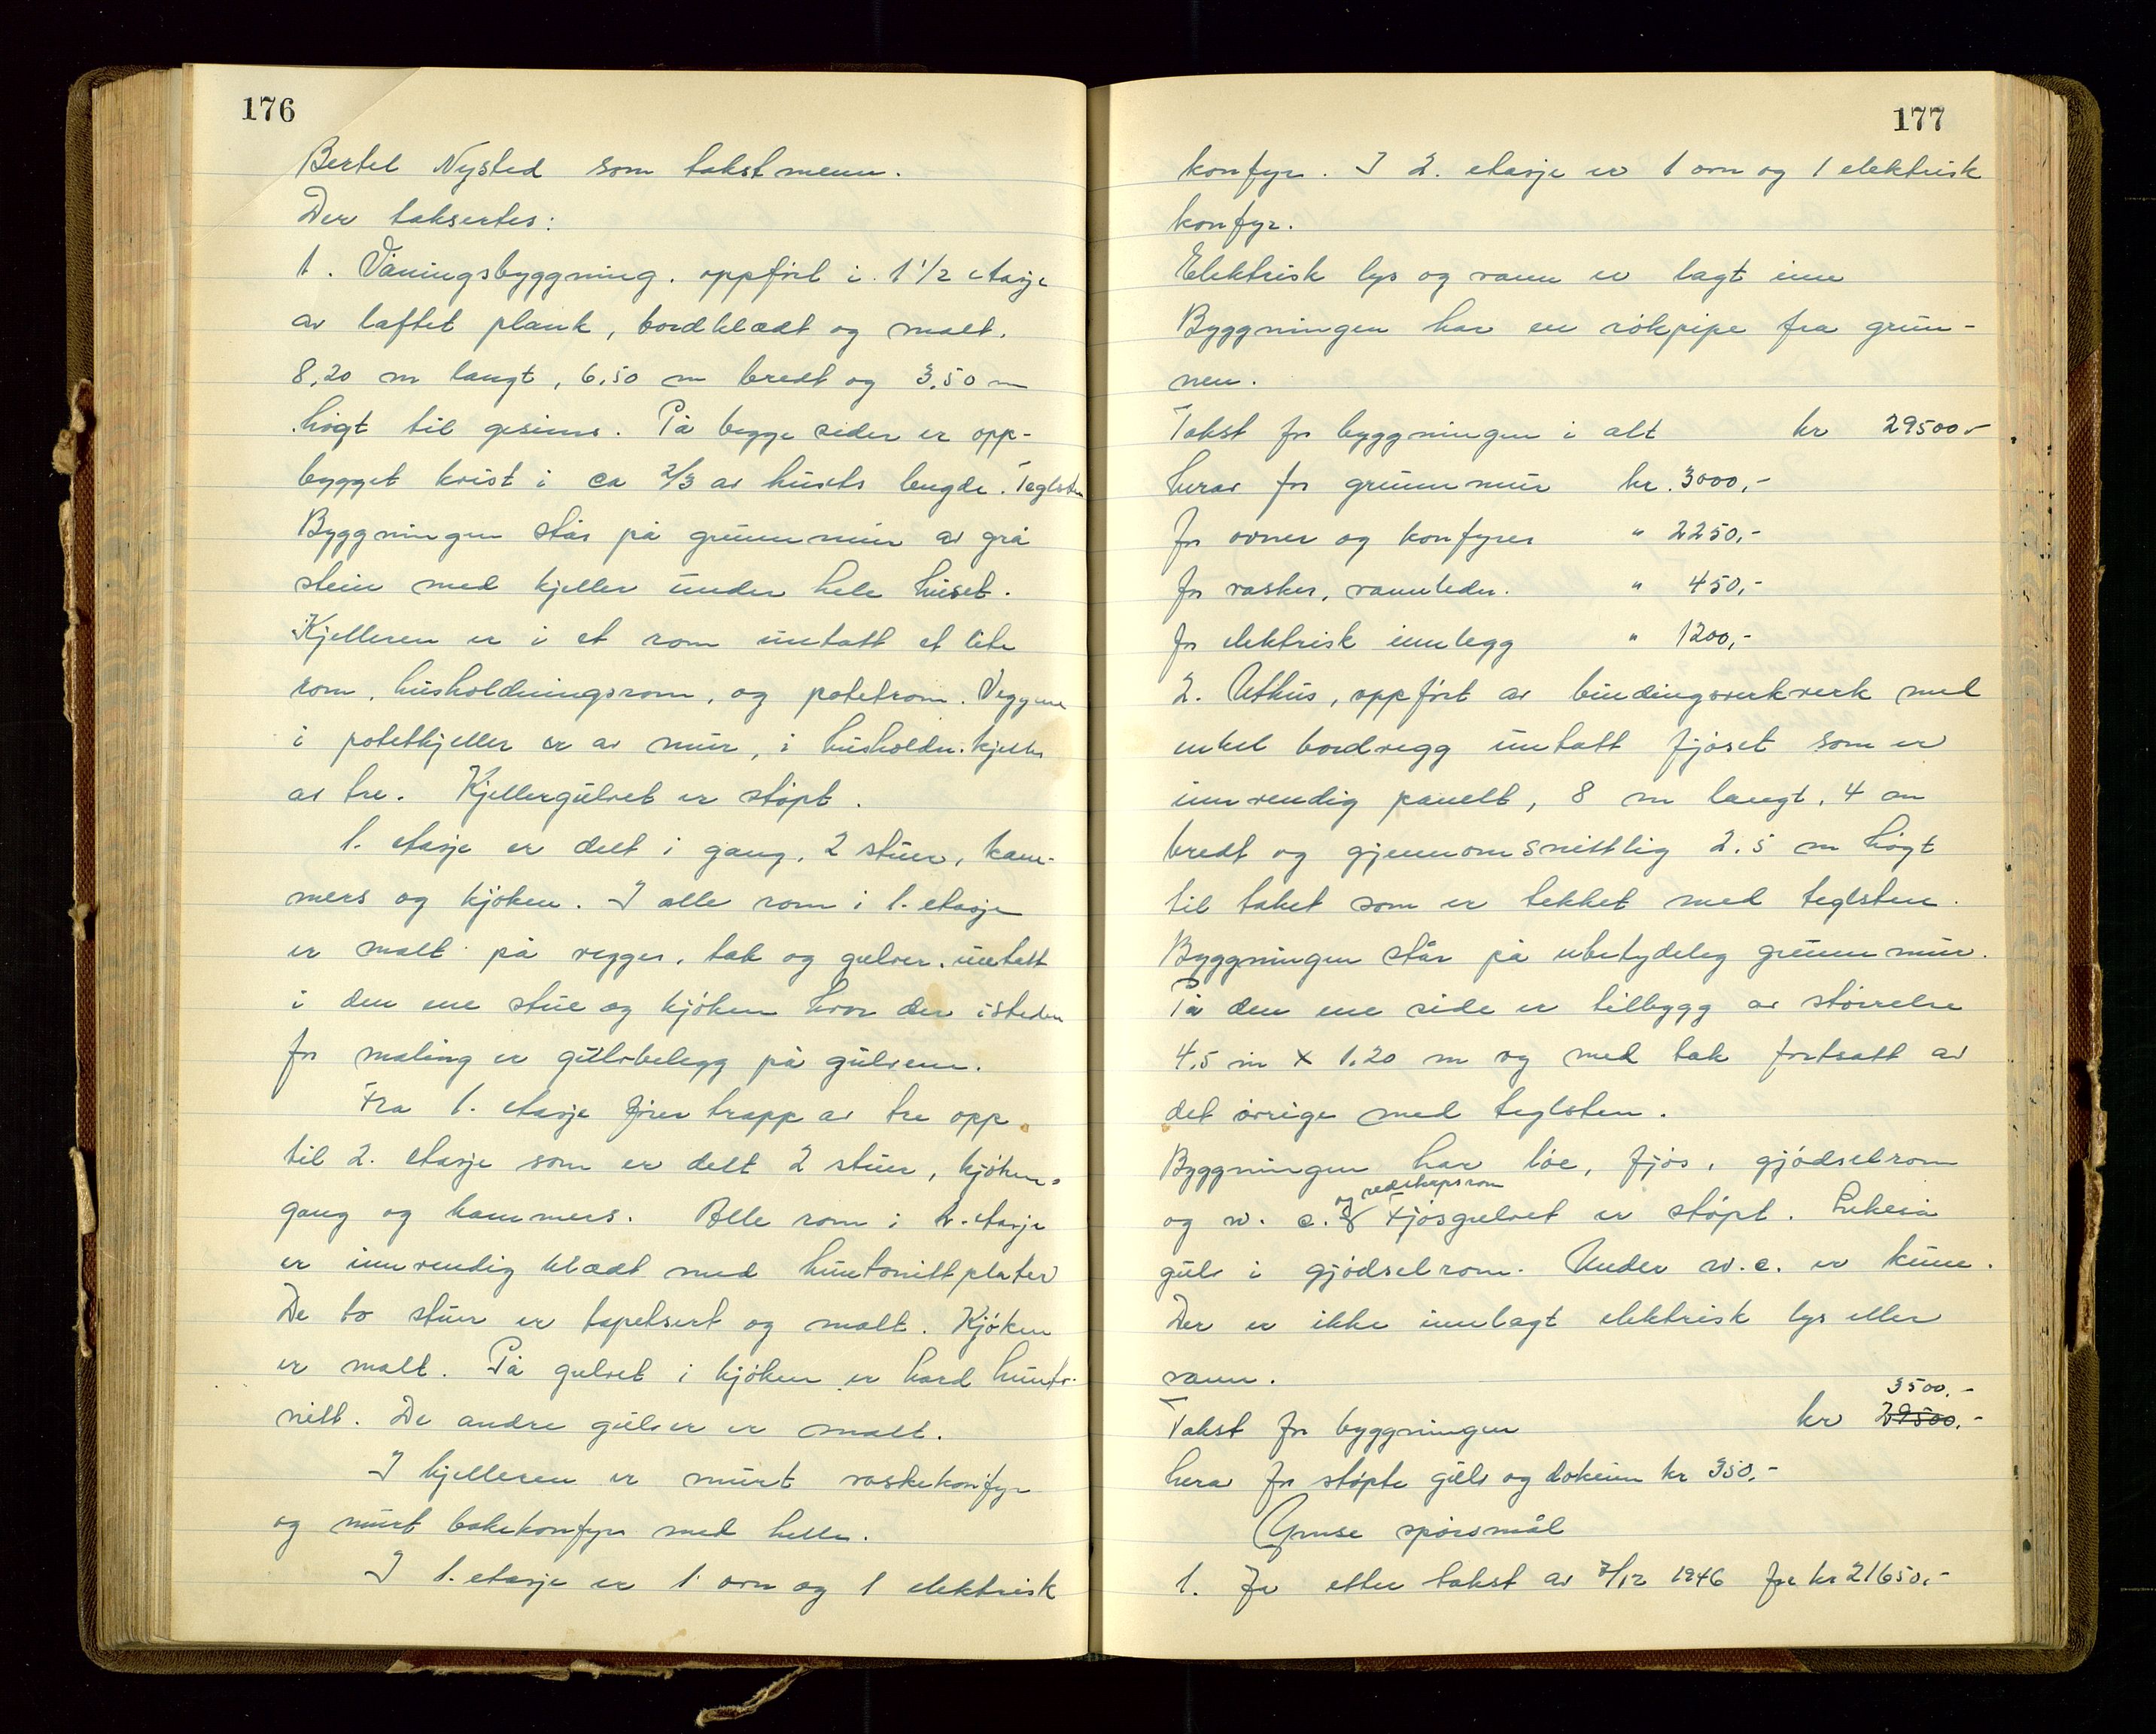 176
Bertel Nysted som takstmenn.
Der taksertes:
1. Våningsbyggning. oppført i 1 1/2 etasje
av laftet plank, bordklædt og malt.
8,20 m langt, 6,50 m bredt og 3,50 m
høgt til gesims. På begge sider er opp-
bygget kvist i ca 2/3 av husets lengde. Teglsten
Byggningen står på grunnmur av grå
stein med kjeller under hele huset.
Kjelleren er i et rom untatt et lite
rom, husholdningsrom, og potetrom. Veggene
i potetkjeller er av mur, i husholdn.kjeller
av tre. Kjellergulvet er støpt.
1. etasje er delt i gang, 2 stuer, kam-
mers og kjøken. I alle rom i 1. etasje
er malt på vegger, tak og gulver. untatt
i den ene stue og kjøken hvor der isteden
for maling er gulvbelegg på gulvene.
Fra 1. etasje fører trapp av tre opp
til 2. etasje som er delt 2 stuer, kjøken,
gang og kammers. Alle rom i 2. etasje
er innvendig klædt med huntonittplater
De to stuer er tapetsert og malt. Kjøken
er malt. På gulvet i kjøken er hard hunto-
nitt. De andre gulver er malt.
I kjelleren er murt vaskekonfyr
og murt bakekonfyr med helle.
I 1. etasje er 1 ovn og 1 elektrisk
177
konfyr. I 2. etasje er 1 ovn og 1 elektrisk
konfyr.
Elektrisk lys og vann er lagt inn
Byggningen har en rökpipe fra grun-
nen.
Takst for byggningen i alt kr 29500,-
herav for grunnmur kr. 3000,-
for ovner og konfyrer " 2250,-
for vasker, vannledn. " 450,-
for elektrisk innlegg " 1200,-
2. Uthus, oppført av bindingsverkverk med
enkel bordvegg untatt fjøset som er
innvendig panelt, 8 m langt, 4 m
bredt og gjennomsnittlig 2.5 m høgt
til taket som er tekket med teglsten.
Byggningen står på ubetydeleg grunnmur.
På den ene side er tilbygg av størrelse
4,5 m x 1,20 m og med tak fortsatt av
det øvrige med teglsten.
Byggningen har løe, fjøs, gjødselrom
og redskapsrom
og w. c. Fjøsgulvet er støpt. Likeså
gulv i gjødselrom. Under w.c. er kum.
Der er ikke innlagt elektrisk lys eller
vann.
3500,-
Takst for byggningen kr 29500,-
herav for støpte gulv og dokum kr 350,-
Ymse spørsmål
1. Ja etter takst av 7/12 1946 for kr 21650,-